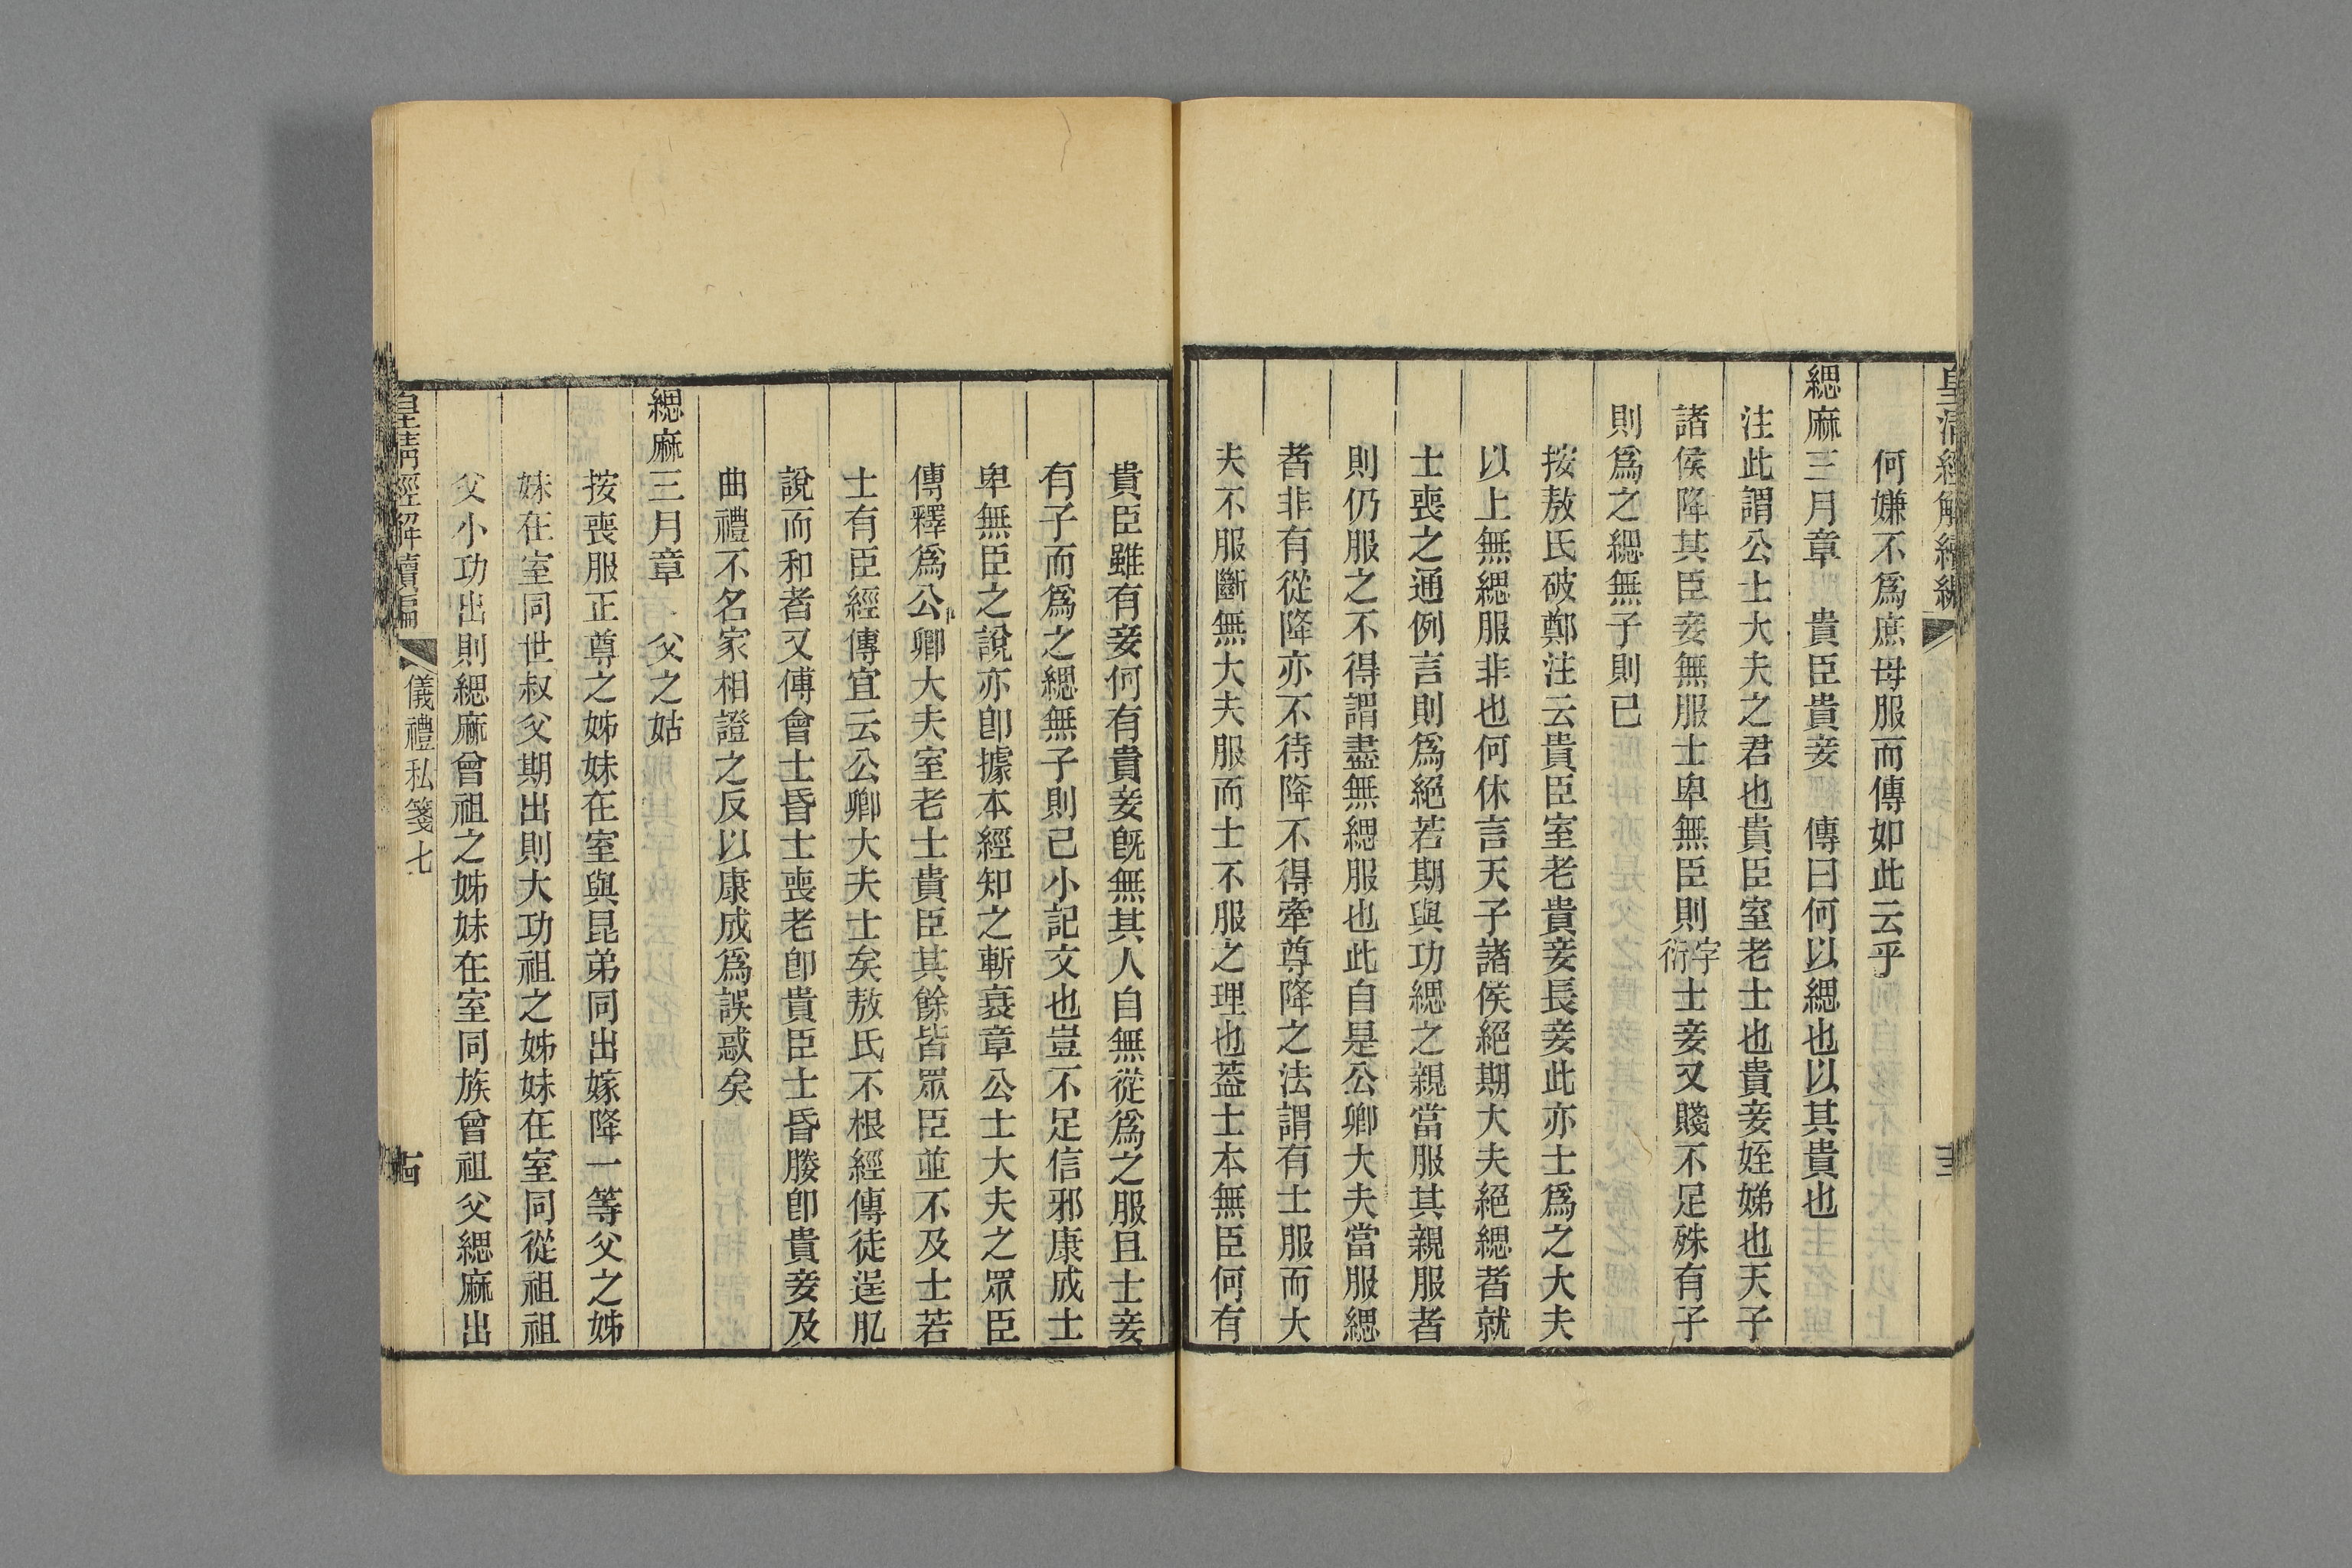 皇清經解續編
何嫌不爲庶母服而傳如此云乎
緦麻三月章 貴臣貴妾 傳曰何以緦也以其貴也
注此謂公士大夫之君也貴臣室老士也貴妾姪娣也天子
諸侯降其臣妾無服士卑無臣則字衍士妾又賤不足殊有子
則爲之緦無子則已
按敖氏破鄭注云貴臣室老貴妾長妾此亦士爲之大夫
以上無緦服非也何休言天子諸侯絕期大夫絕緦者就
士喪之通例言則爲絕若期與功緦之親當服其親服者
則仍服之不得謂盡無緦服也此自是公卿大夫當服緦
者非有從降亦不待降不得牽尊降之法謂有士服而大
夫不服斷無大夫服而士不服之理也葢士本無臣何有
貴臣雖有妾何有貴妾旣無其人自無從爲之服且士妾
有子而爲之緦無子則已小記文也豈不足信邪康成士
卑無臣之說亦卽據本經知之斬衰章公士大夫之眾臣
傳釋爲公卿大夫室老士貴臣其餘皆眾臣並不及士若
士有臣經傳宜云公卿大夫士矣敖氏不根經傳徒逞肊
說而和者又傅會士昏士喪老卽貴臣士昏媵卽貴妾及
曲禮不名家相證之反以康成爲誤惑矣
緦麻三月章 父之姑
按喪服正尊之姊妹在室與昆弟同出嫁降一等父之姊
妹在室同世叔父期出則大功祖之姊妹在室同從祖祖
父小功出則緦麻曾祖之姊妹在室同族曾祖父緦麻出
皇清經解續編
儀禮私箋七
十四